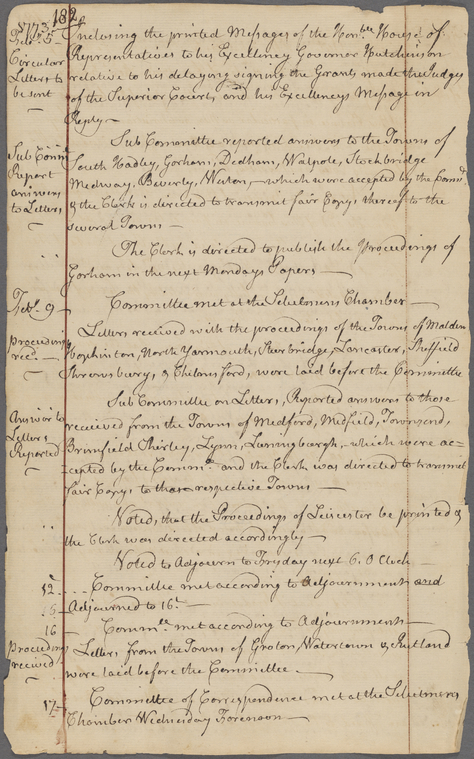 182
1773
Feb. 5
Circular
Letters to
be sent
Inclosing the printed Messages of the Honble. House of
Representatives to his Excellency Governor Hutchinson
relative to his delaying signing the Grants made the Judges
of the Superior Court, and his Excellencys Message in
Reply —
Sub Comm
Report
answers
to Letters
Sub Committee reported answers to the Towns of
South Hadley, Gorham, Dedham, Walpole, Stockbridge
Medway, Beverly, Newton, which were accepted by the Comm
& the Clerk is directed to transmit fair Copys thereof to the
several Towns —
The Clerk is directed to publish the Proceedings of
Gorham in the next Mondays Papers —
Feb. 9 —
Committee met at the Selectmens Chamber —
proceedings
recd. —
Letters received with the proceedings of the Towns of Malden
Hopkinton, North Yarmouth, Sturbridge, Lancaster, Sheffield
Shrewsbury, & Chelmsford, were laid before the Committee
Answer to
Letters
Reported
Sub Committee on Letters, Reported answers to those
received from the Towns of Medford, Medfield, Townsend,
Brimfield Shirley, Lynn, Luningburgh, which were ac-
cepted by the Comme. and the Clerk was directed to transmit
fair Copys to those respective Towns —
Voted, that the Proceedings of Leicester be printed &
the Clerk was directed accordingly —
Voted to Adjourn to Fryday next 6. O Clock —
12 — Committee met according to Adjournment and
15 — Adjourned to 16t. —
16 — Comme. met according to Adjournment —
Proceedings
received
Letters from the Towns of Groton Watertown & Rutland
were laid before the Committee. —
17 — Committee of Correspondence met at the Selectmens
Chamber Wednesday Forenoon —